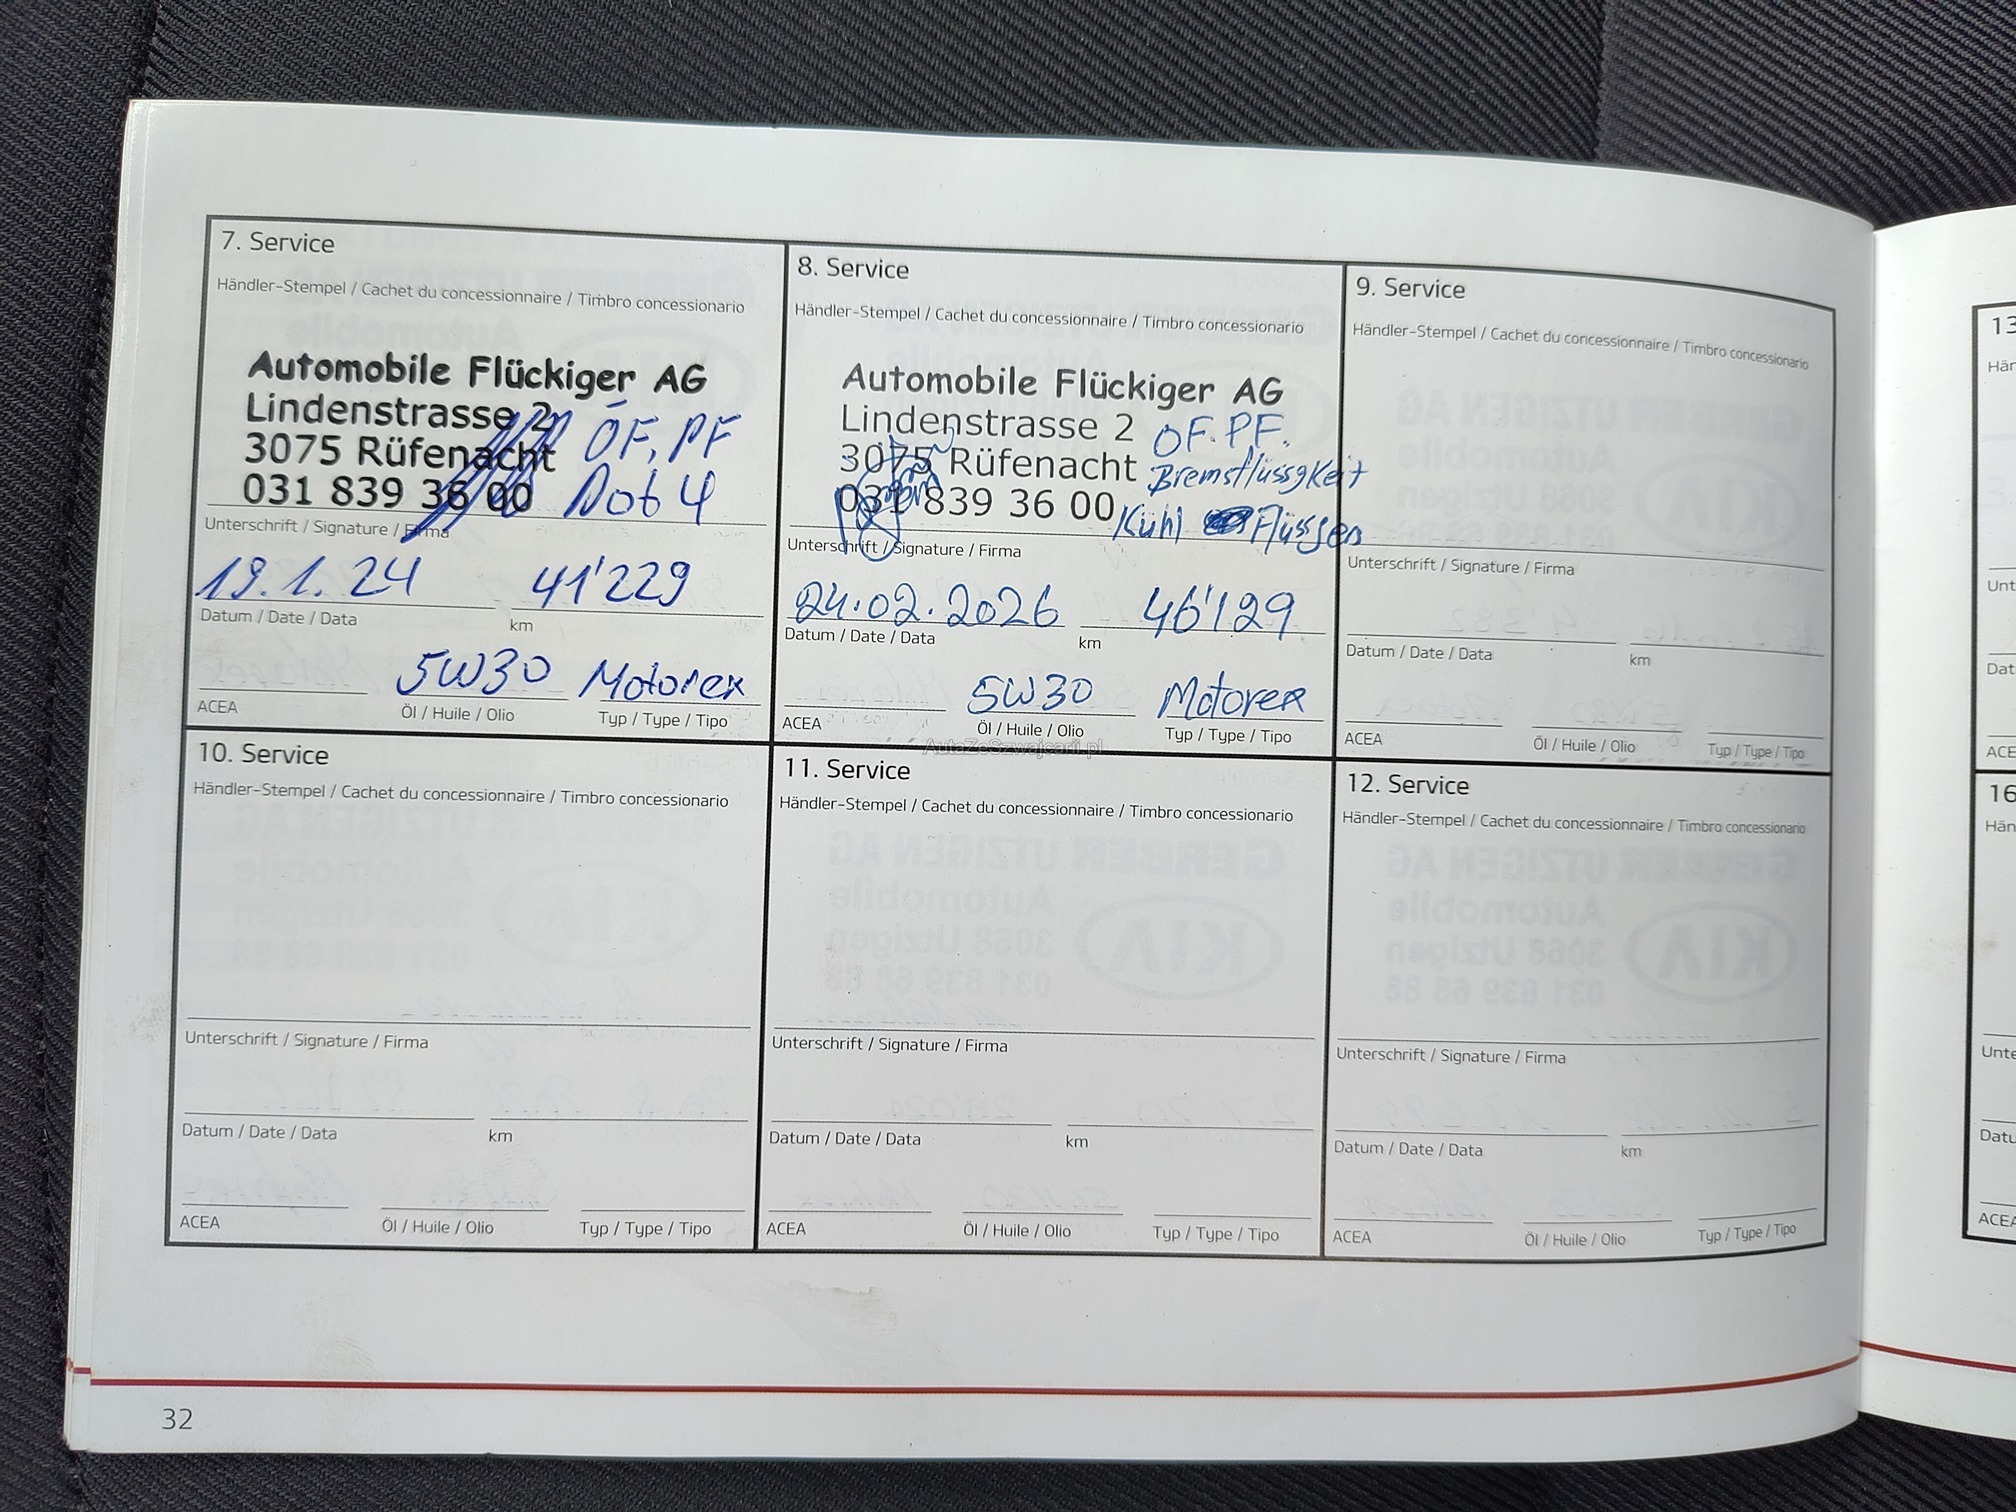 7. Service
Händler-Stempel / Cachet du concessionnaire / Timbro concessionario
Automobile Flückiger AG
Lindenstrasse 2
3075 Rüfenacht
031 839 36 00
ÖF, PF
Dot 4
Unterschrift / Signature / Firma
19.1.24 41'229
Datum / Date / Data km
5W30 Motorex
ACEA Öl / Huile / Olio Typ / Type / Tipo
8. Service
Händler-Stempel / Cachet du concessionnaire / Timbro concessionario
Automobile Flückiger AG
Lindenstrasse 2
3075 Rüfenacht
031 839 36 00
ÖF. PF.
Bremsflüssgkeit
Kühl Flüssgen
Unterschrift / Signature / Firma
24.02.2026 46'129
Datum / Date / Data km
5W30 Motorex
ACEA Öl / Huile / Olio Typ / Type / Tipo
9. Service
Händler-Stempel / Cachet du concessionnaire / Timbro concessionario
Unterschrift / Signature / Firma
Datum / Date / Data km
ACEA Öl / Huile / Olio Typ / Type / Tipo
AutaZeSzwajcarii.pl
10. Service
Händler-Stempel / Cachet du concessionnaire / Timbro concessionario
Unterschrift / Signature / Firma
Datum / Date / Data km
ACEA Öl / Huile / Olio Typ / Type / Tipo
11. Service
Händler-Stempel / Cachet du concessionnaire / Timbro concessionario
Unterschrift / Signature / Firma
Datum / Date / Data km
ACEA Öl / Huile / Olio Typ / Type / Tipo
12. Service
Händler-Stempel / Cachet du concessionnaire / Timbro concessionario
Unterschrift / Signature / Firma
Datum / Date / Data km
ACEA Öl / Huile / Olio Typ / Type / Tipo
32
13
Här
Unt
Dat
ACE
16
Hän
Unte
Datu
ACEA